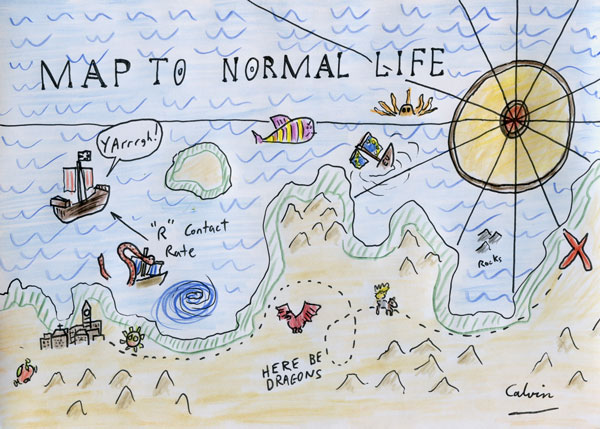 MAP TO NORMAL LIFE
YArrrgh!
"R" Contact
Rate
Rocks
HERE BE
DRAGONS
Calvin